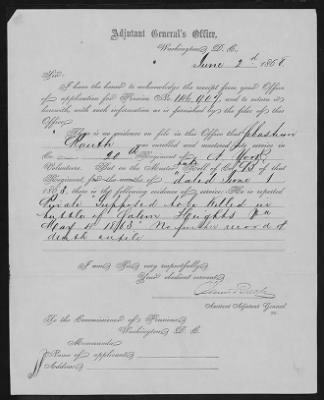 Adjutant General's Office,
Washington, D. C.
June 2d 1868.
Sir:
I have the honor to acknowledge the receipt from your Office
of application for Pension No. and to return it
herewith, with such information as is furnished by the files of this
Office.
There is no evidence on file in this Office that
was enrolled and mustered into service in
Co. 20 Regiment of
Volunteers. But on the Muster Roll of Co. of that
Regiment for the months of dated June 1
1863, there is the following evidence of service: He is reported
Private "Supposed to be killed in
battle of Salem Heights Va
May 3 1863" No further record of
death on file
I am, Sir, very respectfully,
Your obedient servant,
Assistant Adjutant General
To the Commissioner of Pensions,
Washington, D. C.
Memoranda:
Name of applicant,
Address,